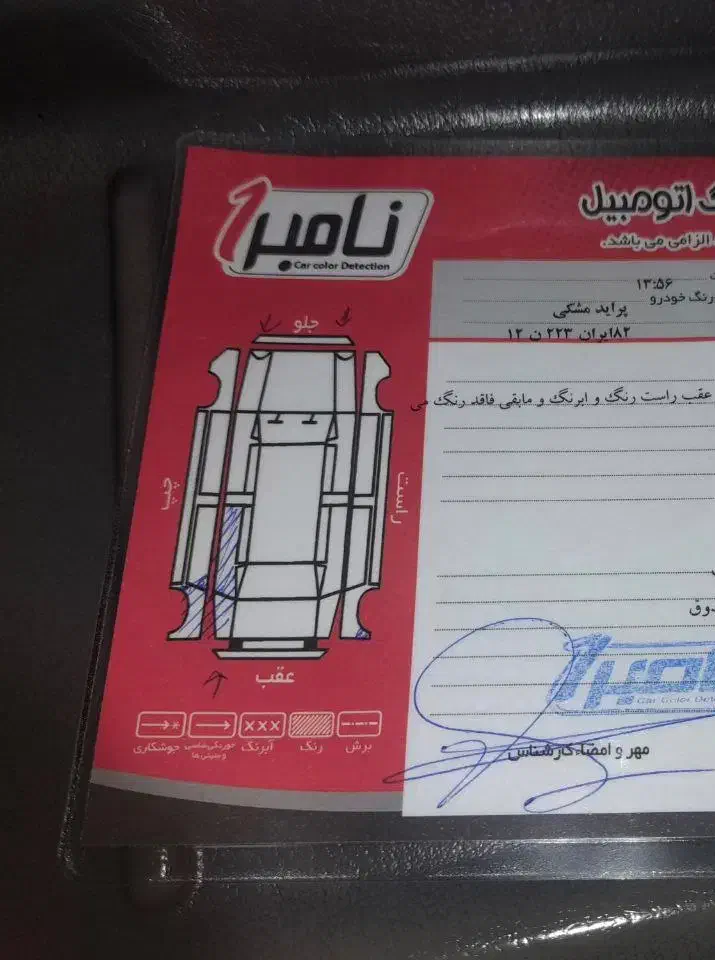 نامبر 1
Car color Detection
اتومبیل
الزامی می باشد.
۱۳:۵۶
رنگ خودرو
پراید مشکی
۸۲ایران ۲۲۳ ن ۱۲
عقب راست رنگ و ابرنگ و مابقی فاقد رنگ می
جلو
چپ
راست
عقب
جوشکاری
آبرنگ
رنگ
برش
مهر و امضاء کارشناس
Car Color Dete